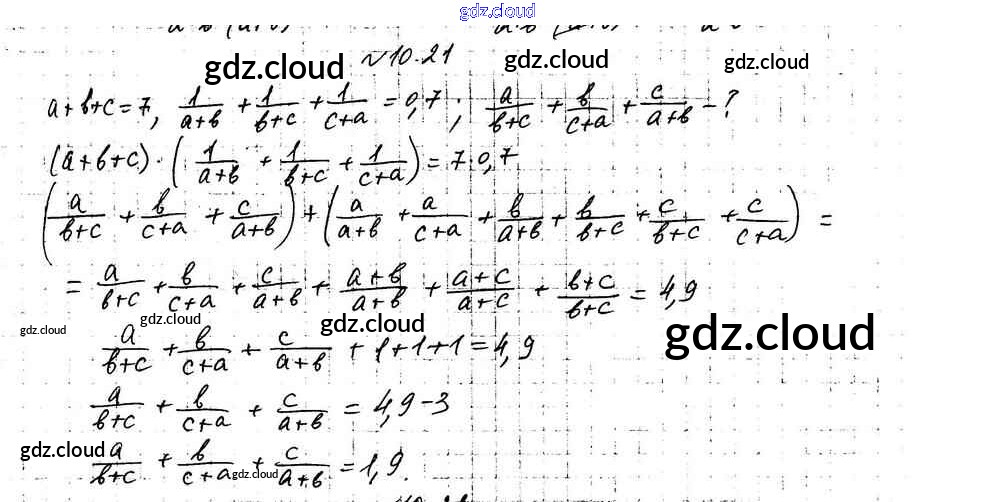 gdz.cloud
№10.21
gdz.cloud gdz.cloud gdz.cloud
a+b+c=7, 1/(a+b) + 1/(b+c) + 1/(c+a) = 0,7; a/(b+c) + b/(c+a) + c/(a+b) - ?
(a+b+c)·(1/(a+b) + 1/(b+c) + 1/(c+a)) = 7·0,7
(a/(b+c) + b/(c+a) + c/(a+b)) + (a/(a+b) + a/(c+a) + b/(a+b) + b/(b+c) + c/(b+c) + c/(c+a)) =
= a/(b+c) + b/(c+a) + c/(a+b) + (a+b)/(a+b) + (a+c)/(a+c) + (b+c)/(b+c) = 4,9
gdz.cloud gdz.cloud gdz.cloud gdz.cloud
a/(b+c) + b/(c+a) + c/(a+b) + 1+1+1 = 4,9
a/(b+c) + b/(c+a) + c/(a+b) = 4,9-3
gdz.cloud
a/(b+c) + b/(c+a) + c/(a+b) = 1,9.
gdz.cloud